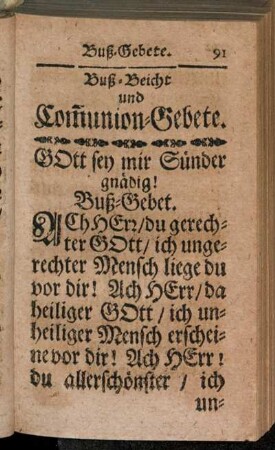 Buß-Gebete. 91
Buß-Beicht
und
Com̃union-Gebete.
GOtt sey mir Sünder
gnädig!
Buß-Gebet.
ACh HErr/du gerech-
ter GOtt/ ich unge-
rechter Mensch liege du
vor dir! Ach HErr/da
heiliger GOtt/ ich un-
heiliger Mensch erschei-
ne vor dir! Ach HErr!
du allerschönster / ich
un-